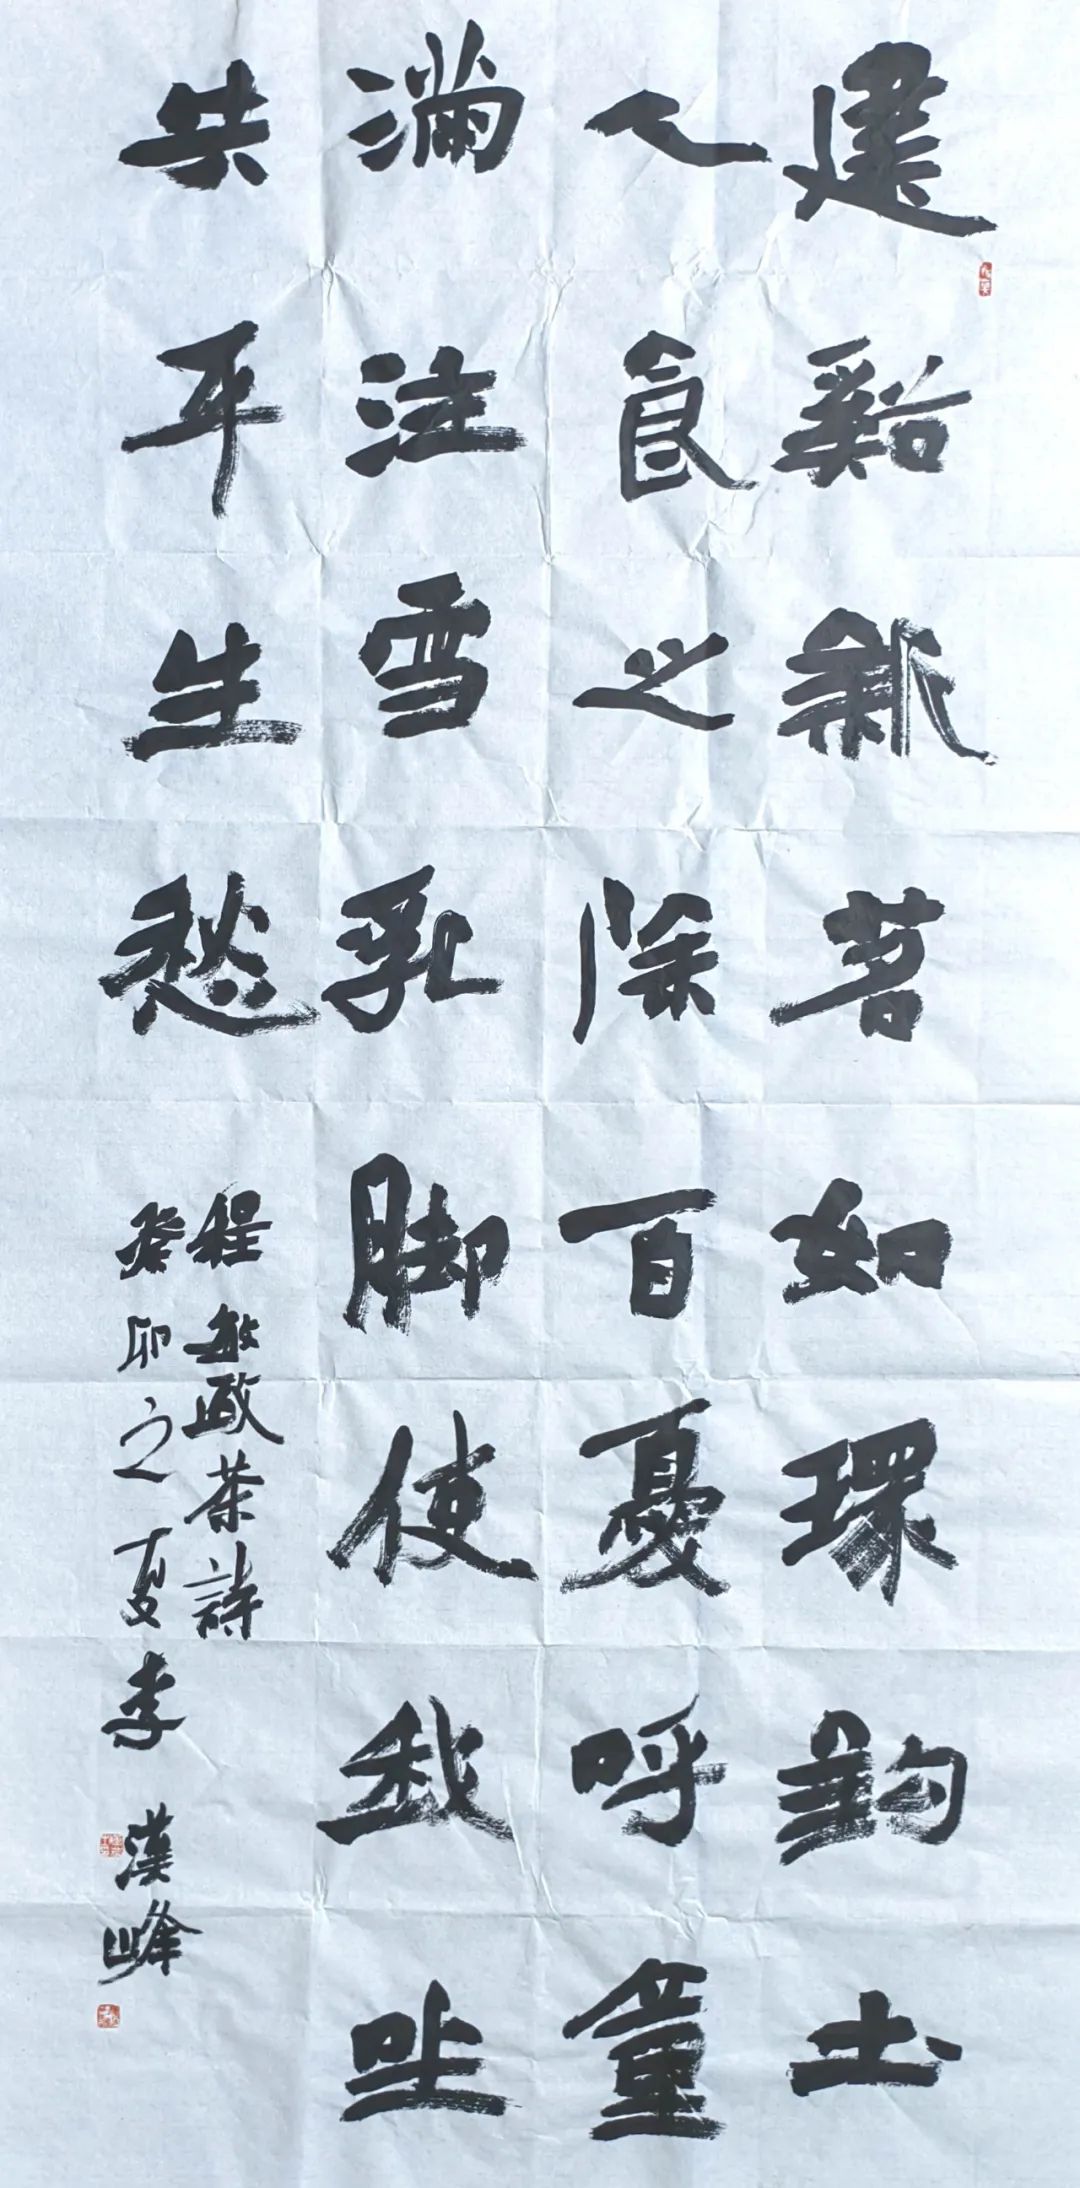 建谿新茗如環鈎土
人食之除百憂呼童
滿注雪乳脚使我坐
失平生愁
程敏政茶詩
癸卯之夏李漢峰